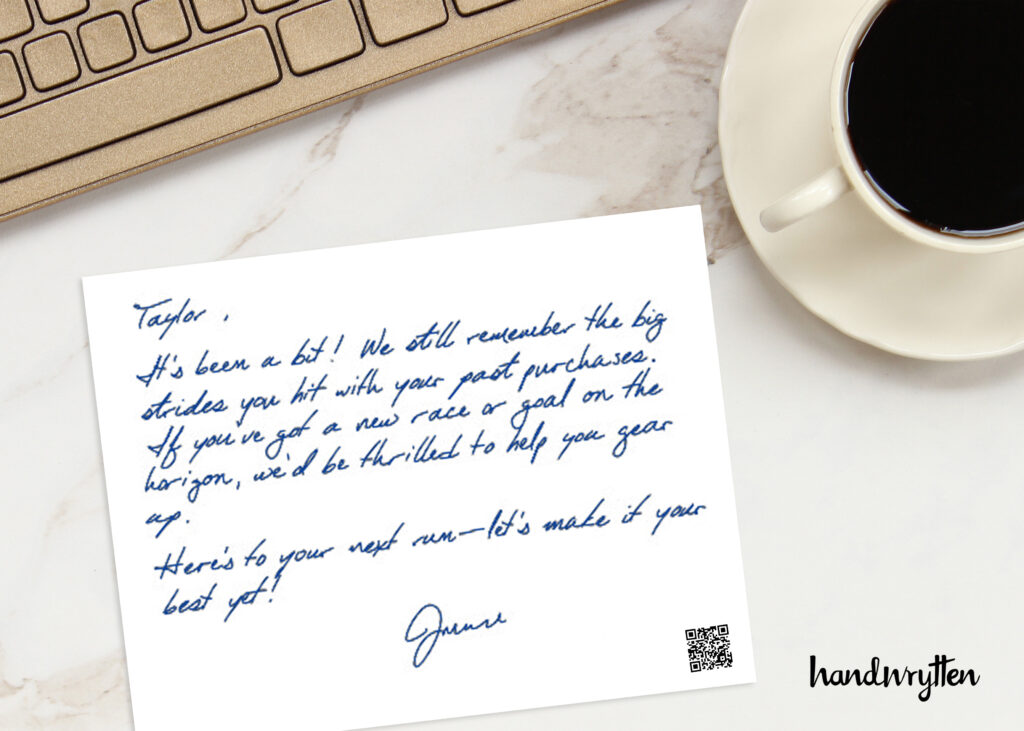 Taylor,
It's been a bit! We still remember the big
strides you hit with your past purchases.
If you've got a new race or goal on the
horizon, we'd be thrilled to help you gear
up.
Here's to your next run—let's make it your
best yet!
handwrytten